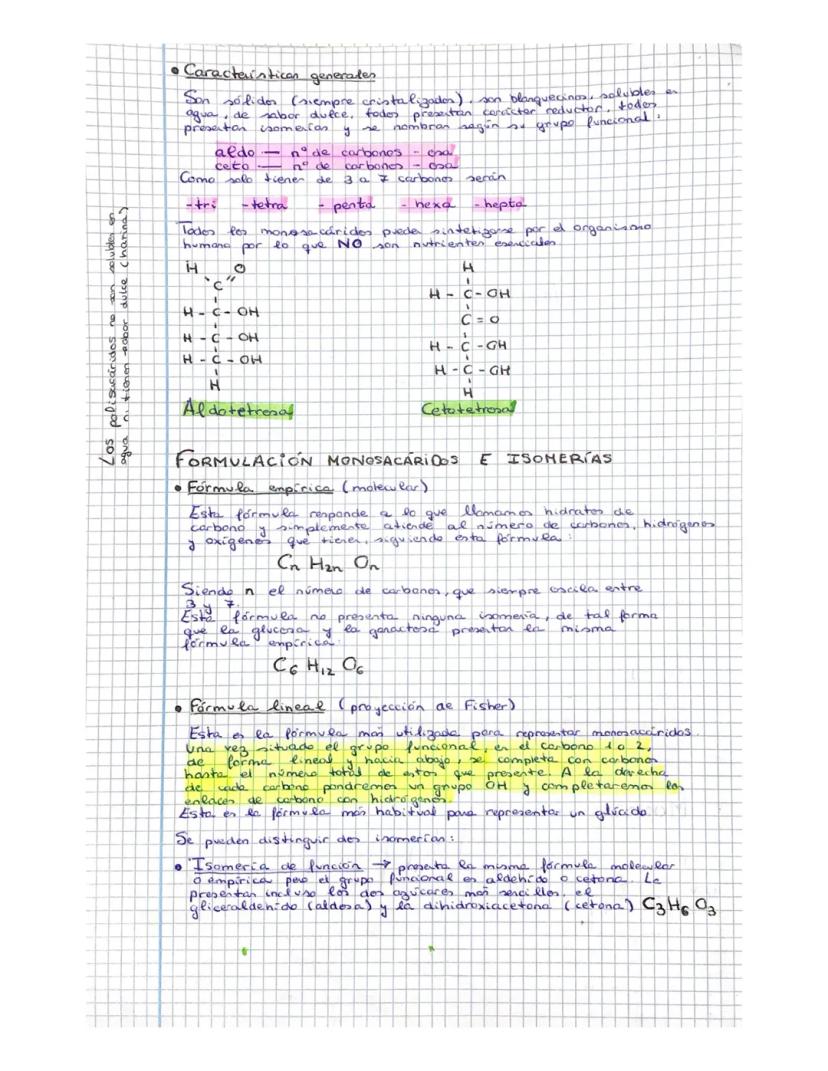 • Características generales
Son sólidos (siempre cristalizados), son blanquecinos, solubles en
agua, de sabor dulce, todos presentan carácter reductor, todos
presentan isomerías y se nombran según su grupo funcional:
aldo — nº de carbonos - osa
ceto — nº de carbonos - osa
Como solo tienen de 3 a 7 carbonos serán
-tri -tetra - penta - hexa - hepta
Todos los monosacáridos pueden sintetizarse por el organismo
humano por lo que NO son nutrientes esenciales
Los polisacáridos no son solubles en
agua ni tienen sabor dulce (harina)
H O
C
H - C - OH
H - C - OH
H - C - OH
H
Aldotetrosa
H
H - C - OH
C = O
H - C - OH
H - C - OH
H
Cetotetrosa
FORMULACIÓN MONOSACÁRIDOS E ISOMERÍAS
• Fórmula empírica (molecular)
Esta fórmula responde a lo que llamamos hidratos de
carbono y simplemente atiende al número de carbonos, hidrógenos
y oxígenos que tienen, siguiendo esta fórmula:
Cn H2n On
Siendo n el número de carbonos, que siempre oscila entre
3 y 7.
Esta fórmula no presenta ninguna isomería, de tal forma
que la glucosa y la ganactosa presentan la misma
fórmula empírica:
C6 H12 O6
• Fórmula lineal (proyección de Fisher)
Esta es la fórmula más utilizada para representar monosacáridos.
Una vez situado el grupo funcional, en el carbono 1 o 2,
de forma lineal y hacia abajo, se completa con carbonos
hasta el número total de estos que presente. A la derecha
de cada carbono pondremos un grupo OH y completaremos los
enlaces de carbono con hidrógenos.
Esta es la fórmula más habitual para representar un glúcido
Se pueden distinguir dos isomerías:
• Isomería de función → presenta la misma fórmula molecular
o empírica pero el grupo funcional es aldehído o cetona. La
presentan incluso los dos azúcares más sencillos, el
gliceraldehído (aldosa) y la dihidroxiacetona (cetona) C3 H6 O3